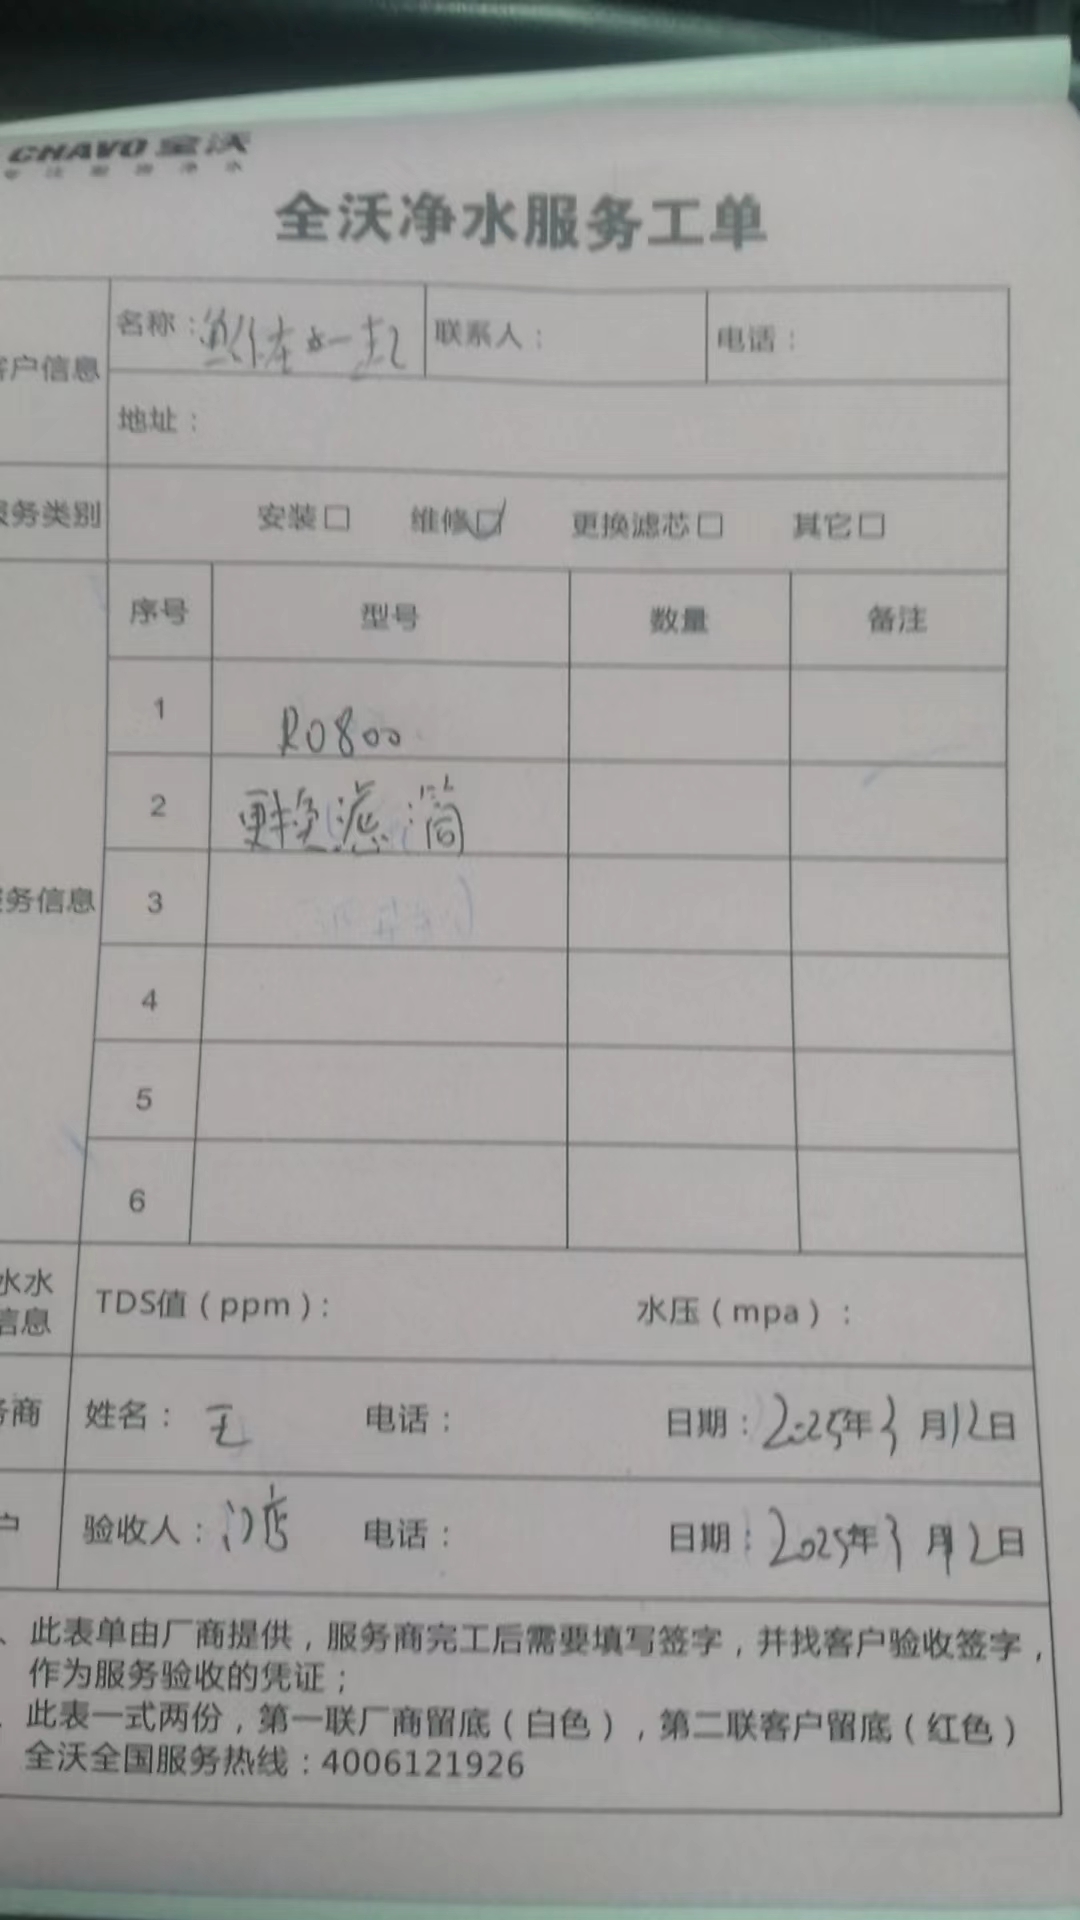 CHAVO 全沃
专注商用净水
全沃净水服务工单
客户信息 名称： 联系人： 电话：
地址：
服务类别 安装□ 维修☑ 更换滤芯□ 其它□
序号 型号 数量 备注
1 RO800
2 更换滤筒
服务信息 3
4
5
6
水水
信息
TDS值（ppm）： 水压（mpa）：
务商 姓名：王 电话： 日期：2025年3月12日
户 验收人：门店 电话： 日期：2025年3月12日
、此表单由厂商提供，服务商完工后需要填写签字，并找客户验收签字，
作为服务验收的凭证；
、此表一式两份，第一联厂商留底（白色），第二联客户留底（红色）
全沃全国服务热线：4006121926